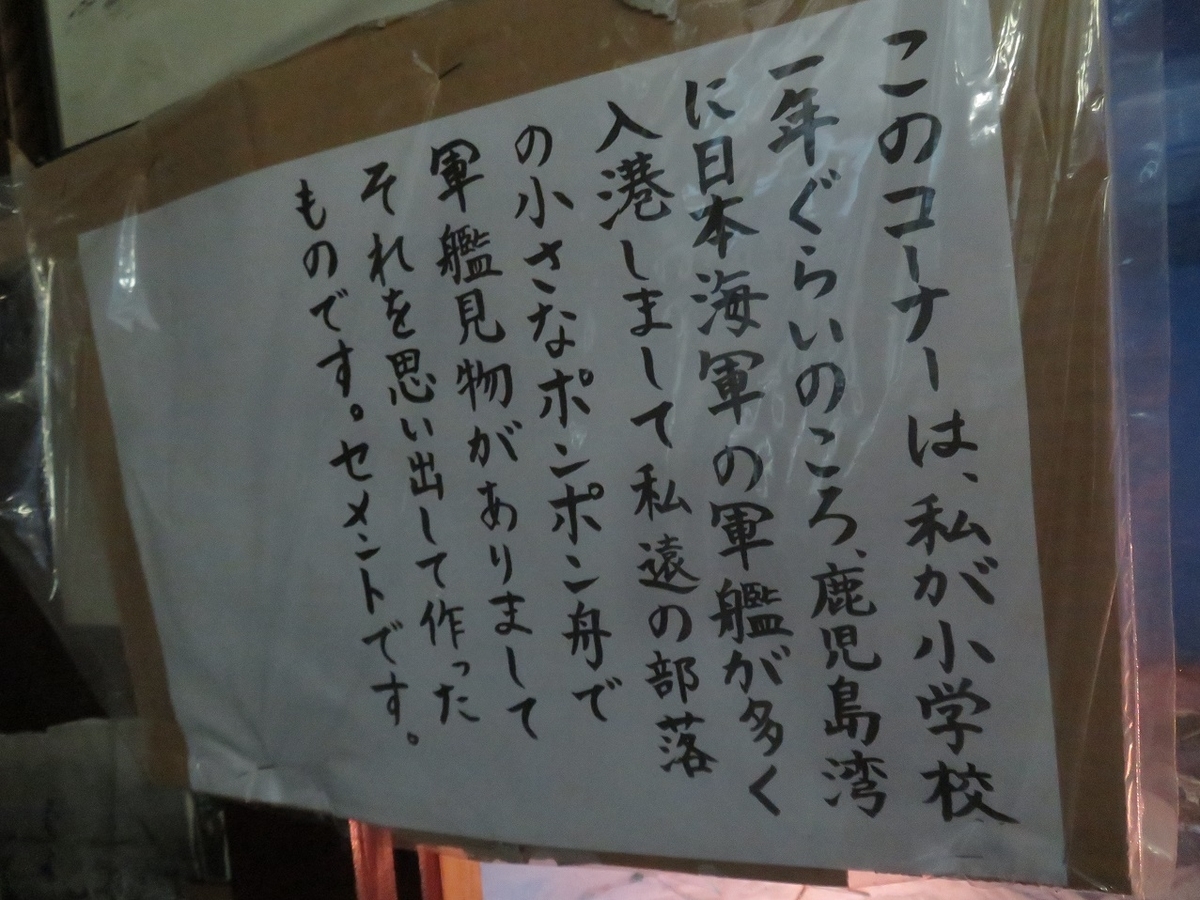 このコーナーは、私が小学校
一年ぐらいのころ、鹿児島湾
に日本海軍の軍艦が多く
入港しまして私遠の部落
の小さなポンポン舟で
軍艦見物がありまして
それを思い出して作った
ものです。セメントです。